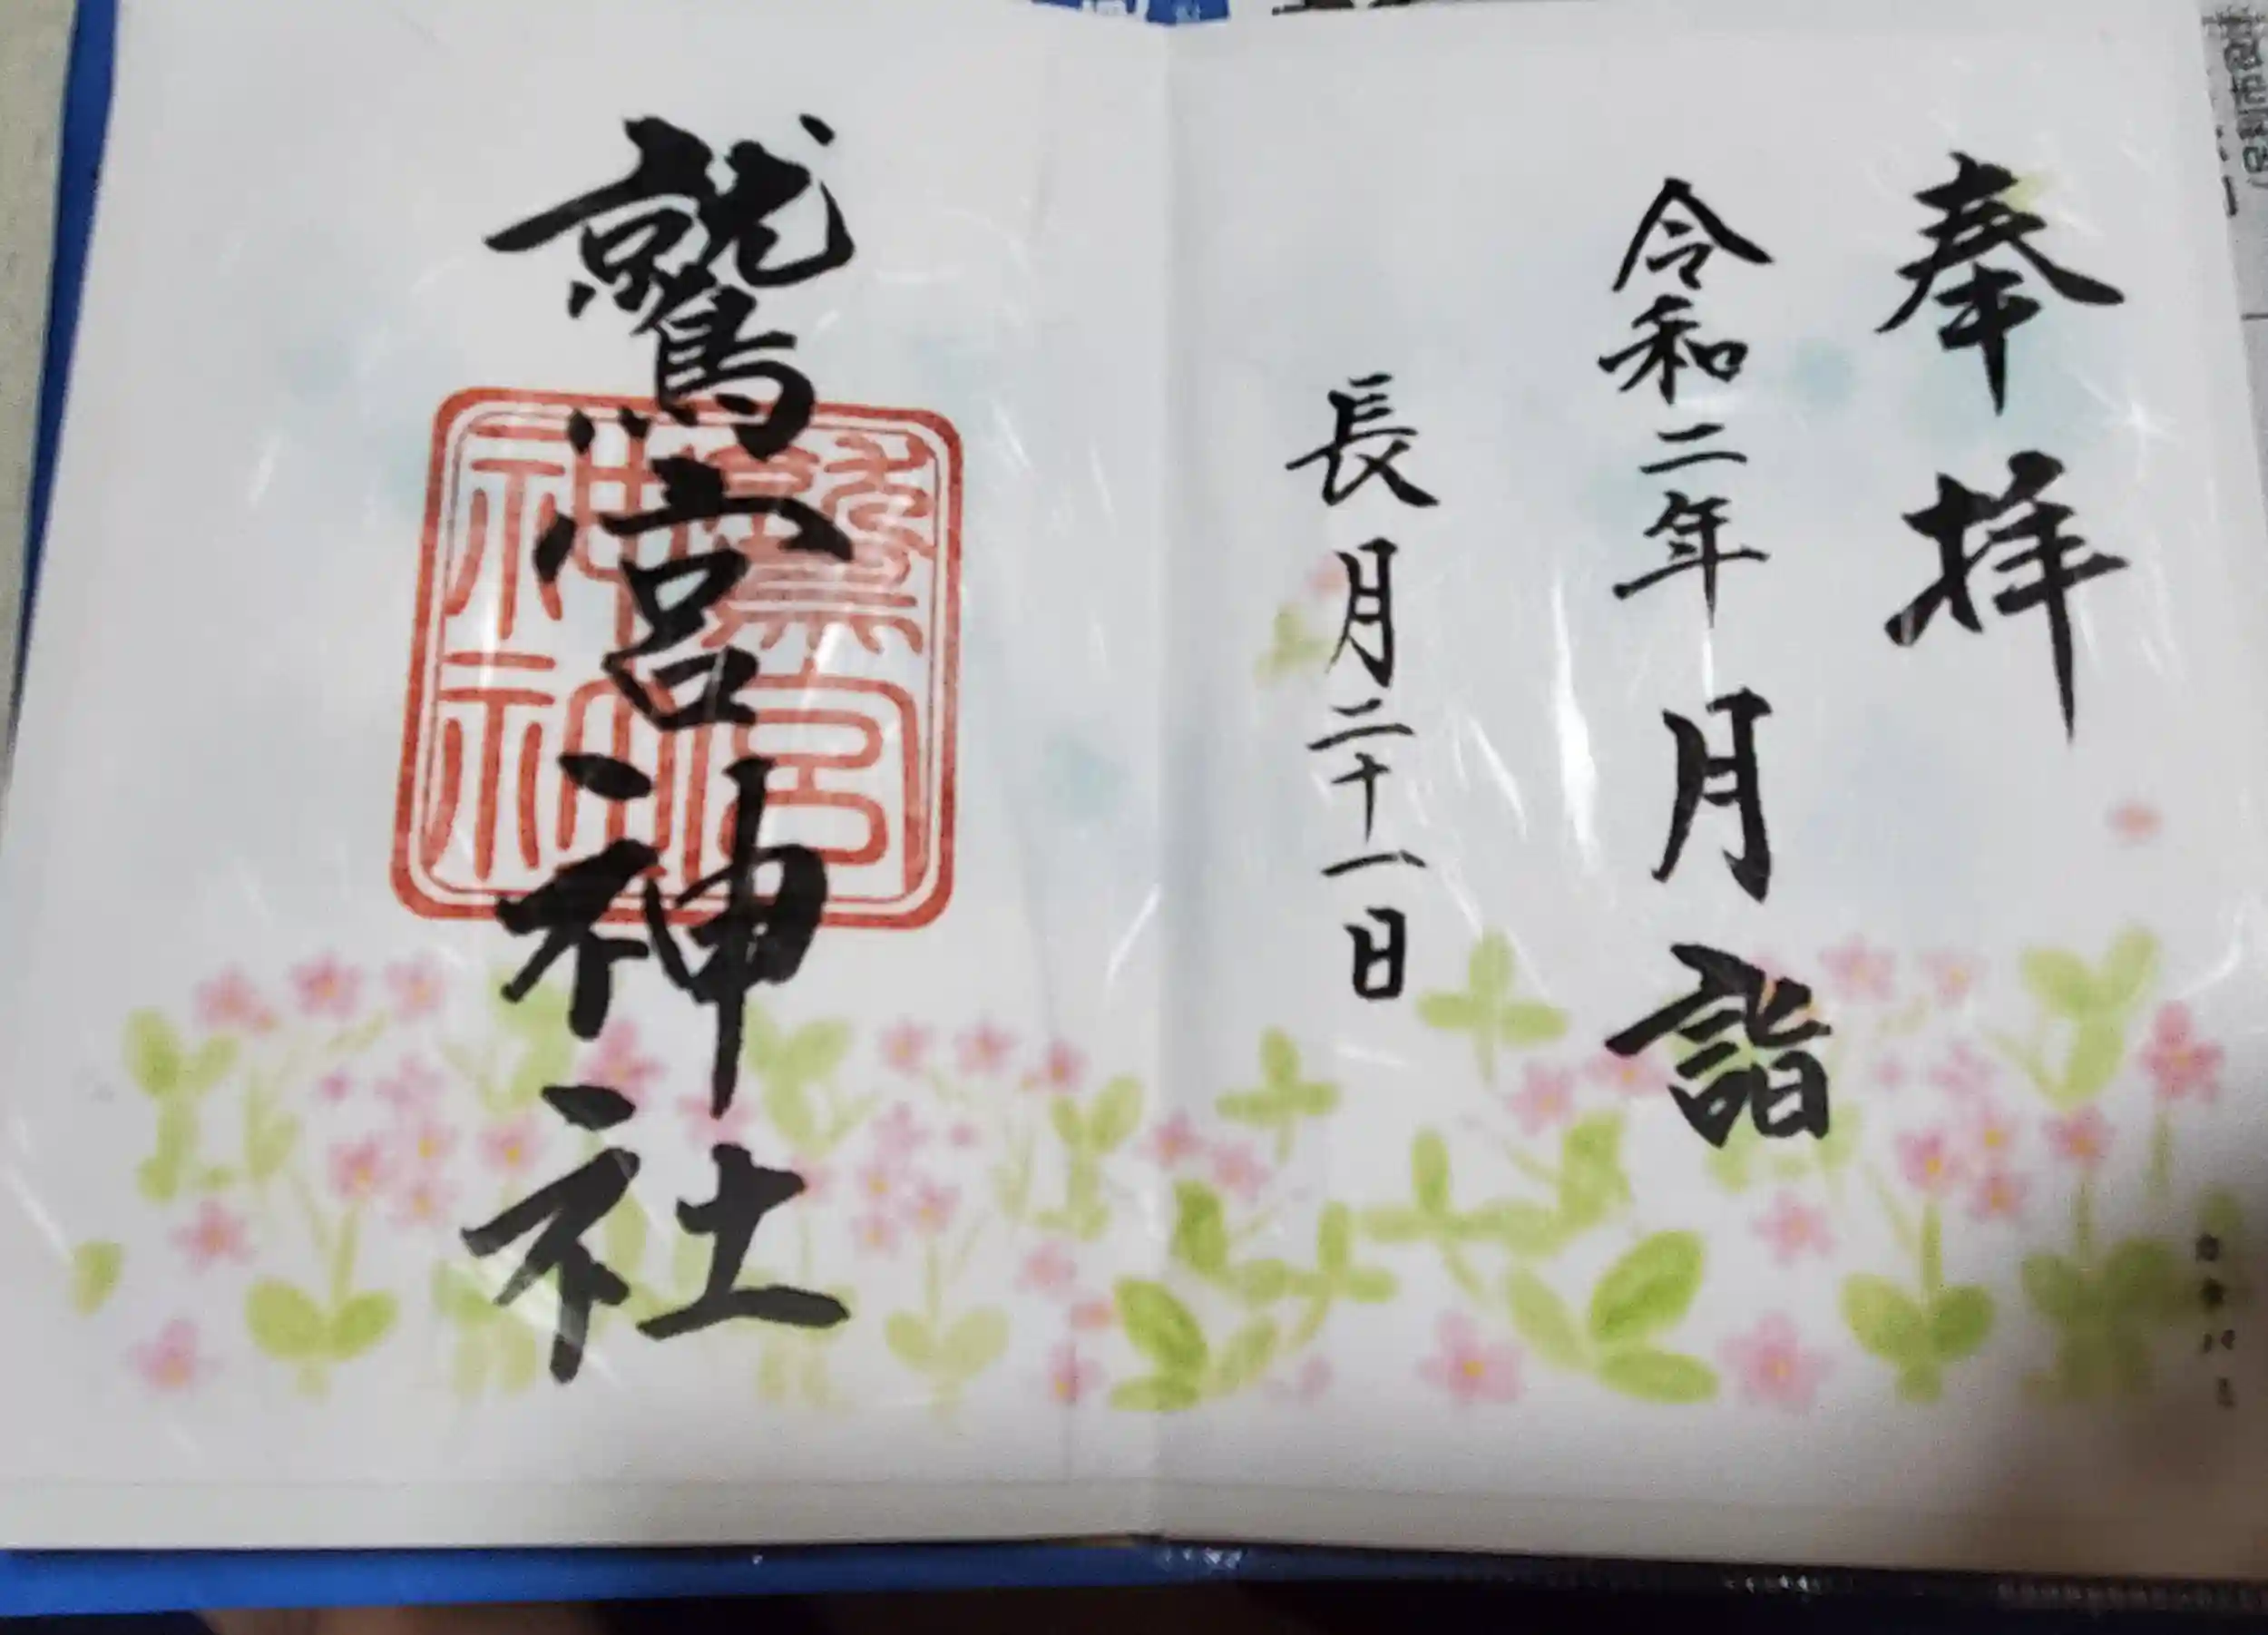 奉拝
令和二年 月詣
長月二十一日
鷲宮神社
鷲宮
神社